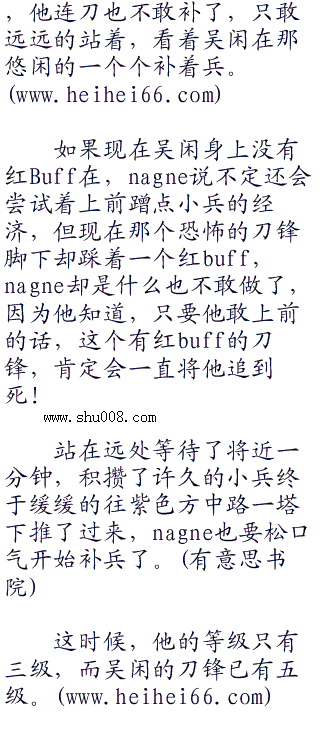 ，他连刀也不敢补了，只敢
远远的站着，看着吴闲在那
悠闲的一个个补着兵。
(www.heihei66.com)
如果现在吴闲身上没有
红Buff在，nagne说不定还会
尝试着上前蹭点小兵的经
济，但现在那个恐怖的刀锋
脚下却踩着一个红buff，
nagne却是什么也不敢做了，
因为他知道，只要他敢上前
的话，这个有红buff的刀
锋，肯定会一直将他追到
死！
www.shu008.com
站在远处等待了将近一
分钟，积攒了许久的小兵终
于缓缓的往紫色方中路一塔
下推了过来，nagne也要松口
气开始补兵了。(有意思书
院)
这时候，他的等级只有
三级，而吴闲的刀锋已有五
级。(www.heihei66.com)